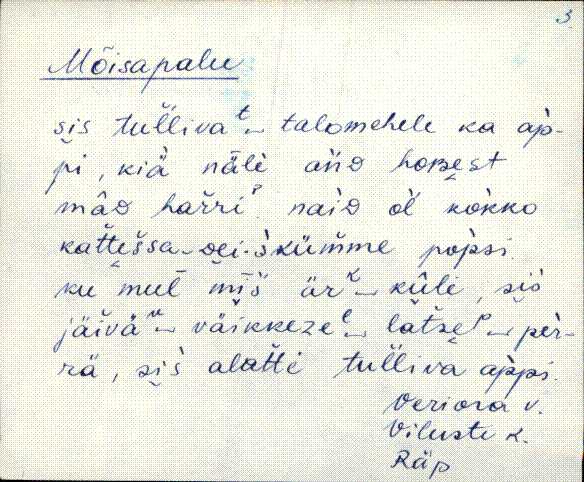 3
Mõisapalu
sis tulliva t talomehele ka àp-
pi, kiä näli änD hoBest
mâD harri ? naiD ol kokko
kattešsa - Dei-skümme popsi
ku mul miš är k kûli, sis
jäivä vàikkeze latse pèr-
rä, sis alatti tulliva appi.
Veriora v.
Viluste k.
Räp